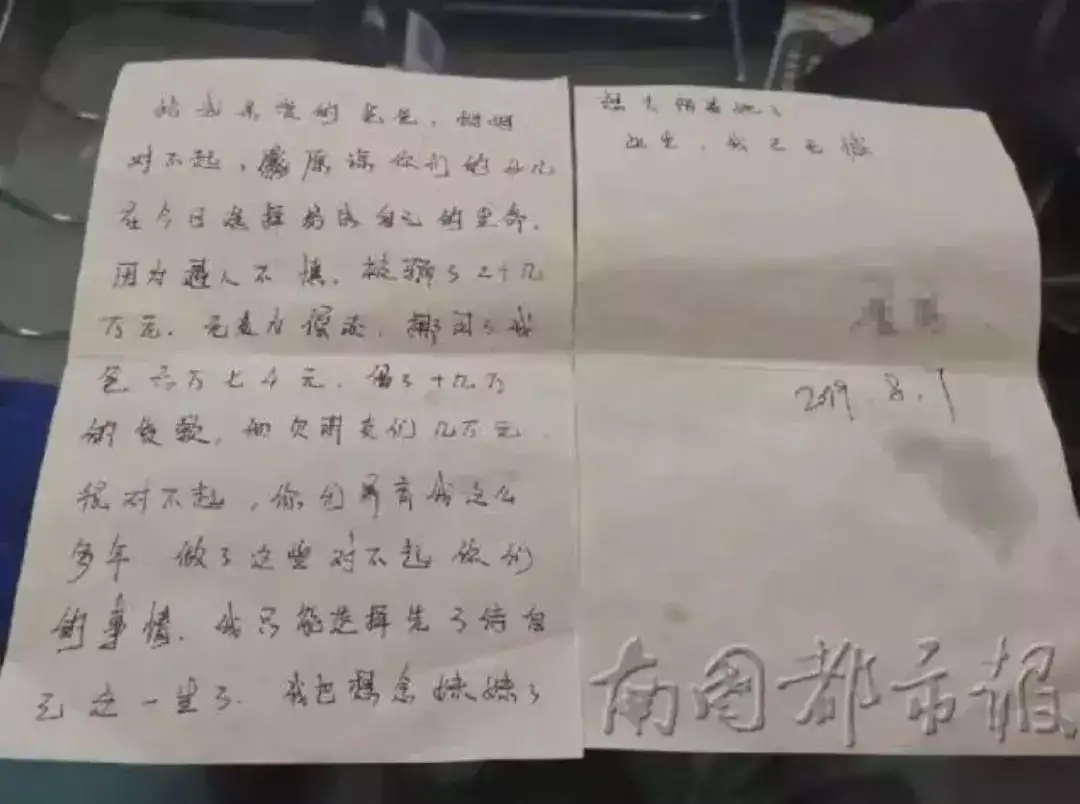 给我亲爱的爸爸、妈妈
对不起，原谅你们的女儿
在今日选择结束自己的生命.
因为遇人不慎、被骗了2十几
万元. 无
色六万七千元. 借了十几万
的贷款, 和欠朋友们几万元.
很对不起, 你们养育我这么
多年 做了这些对不起你们
的事情. 我只能选择先了结自
己这一生了. 我也想念妹妹了
想去陪着她了
此生, 我已无憾
2019.8.7
南国都市报